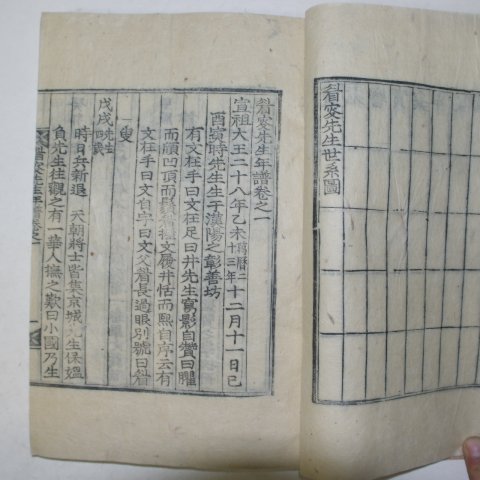 睂叜先生世系圖
睂叜先生年譜卷之一
宣祖大王二十八年乙未萬曆二十三年十二月十一日己
酉寅時先生生于漢陽之彰善坊
有文在手曰文在足曰井先生寫影自贊曰臞
而頎凹頂而鬚眉握文履井恬而熙自序云有
文在手曰文自字曰文父睂長過眼別號曰睂
叟
戊戌先生四歲
時日兵新退 天朝將士皆集京城先生保媼
負先生往觀之有一華人撫之歎曰小國乃生
睂叜先生年譜卷之一